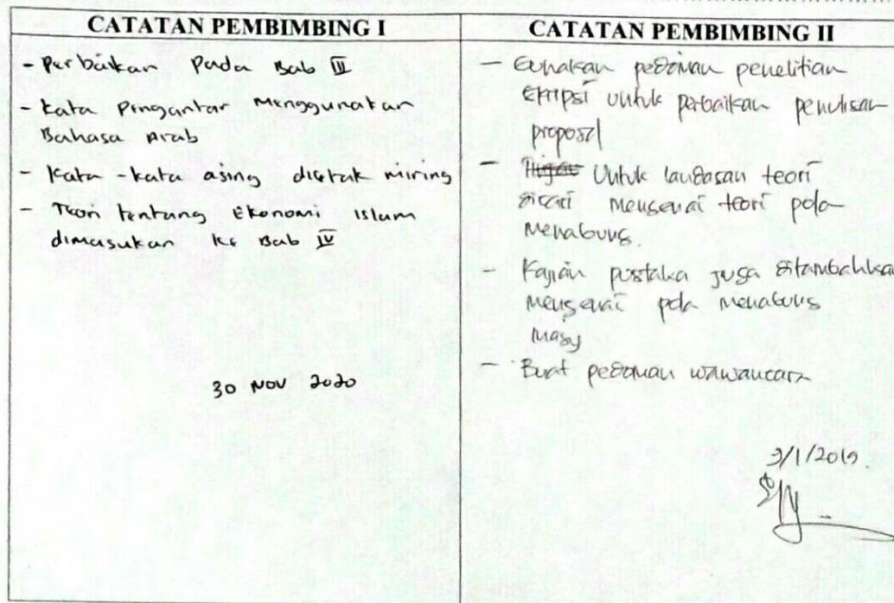 CATATAN PEMBIMBING I
- Perbaikan Pada Bab III
- Kata Pengantar Menggunakan
Bahasa Arab
- Kata-kata asing dicetak miring
- Teori tentang Ekonomi Islam
dimasukan ke Bab IV
30 NOV 2020
CATATAN PEMBIMBING II
- Gunakan pedoman penelitian
skripsi untuk perbaikan penulisan
proposal
- Untuk landasan teori
dicari mengenai teori pola
menabung.
- Kajian pustaka juga ditambahkan
mengenai pola menabung
masy
- Buat pedoman wawancara
3/1/2019.